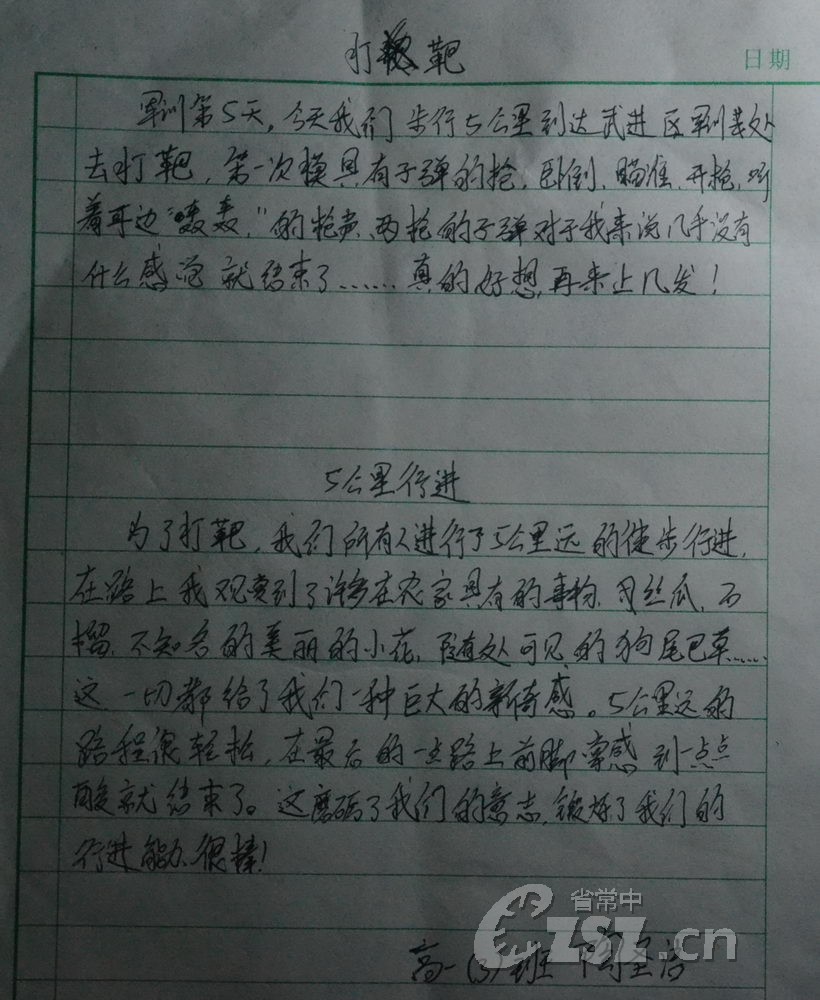 打靶
日期
军训第5天,今天我们步行5公里到达武进区军训某处
去打靶,第一次摸具有子弹的枪,卧倒、瞄准、开枪,听
着耳边"轰轰"的枪声,两枪的子弹对于我来说几乎没有
什么感觉就结束了……真的好想再来上几发!
5公里行进
为了打靶,我们所有人进行了5公里远的徒步行进,
在路上我观赏到了许多在农家具有的事物,丝瓜、石
榴、不知名的美丽的小花,随处可见的狗尾巴草……
这一切都给了我们一种巨大的新奇感。5公里远的
路程很轻松,在最后的一些路上前脚掌感到一点点
酸就结束了。这磨砺了我们的意志,锻炼了我们的
行进能力,很棒!
省常中
CZSZ.cn
高一(3)班